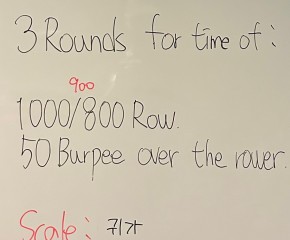 3 Rounds for time of :
900
1000/800 Row.
50 Burpee over the rower.
Scale : 귀가